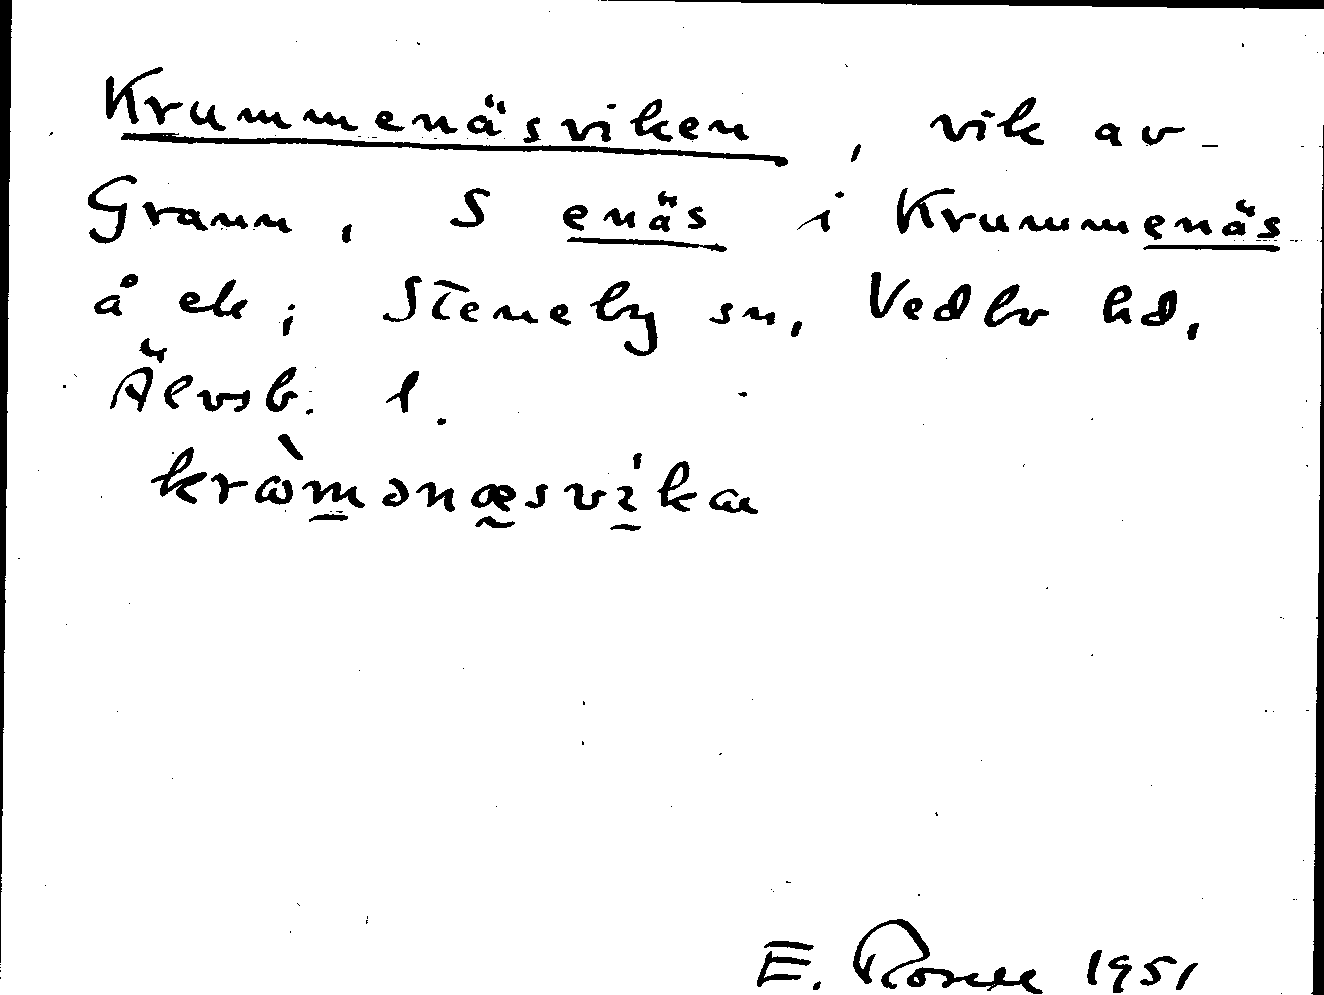 Krummenäsviken, vik av
Grann, S enäs i Krummenäs
å ek; Steneby sn, Vedbo hd,
Älvsb. l.
kròmənæsvíka
E. Rosell 1951